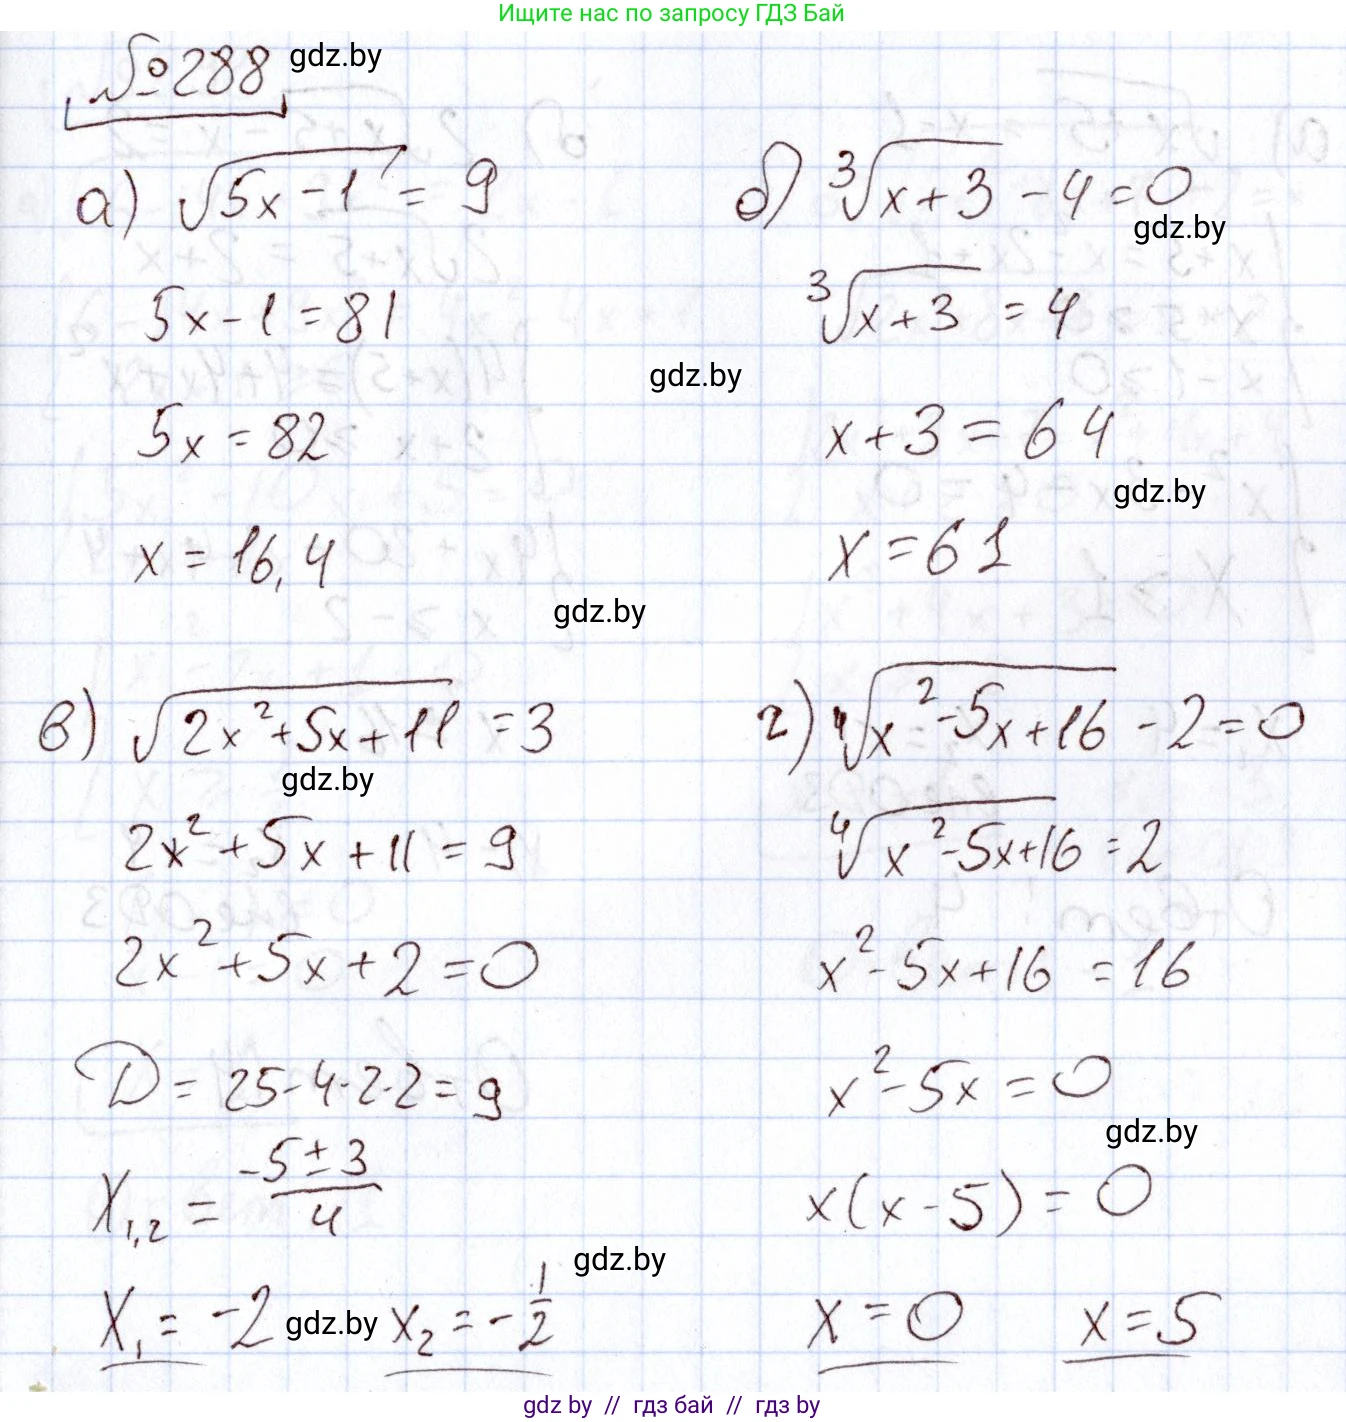 Ищите нас по запросу ГДЗ Бай
№288 gdz.by
а) √(5x-1) = 9
5x-1=81
5x=82
x=16,4
б) ³√(x+3) -4=0
gdz.by
³√(x+3) = 4
gdz.by
x+3=64
gdz.by
x=61
gdz.by
в) √(2x²+5x+11) =3
gdz.by
2x²+5x+11=9
2x²+5x+2=0
D=25-4·2·2=9
X₁,₂ = (-5±3)/4
gdz.by
X₁ = -2 gdz.by x₂ = -1/2
г) ⁴√(x²-5x+16) -2=0
⁴√(x²-5x+16) =2
x²-5x+16 =16
x²-5x=0
gdz.by
x(x-5)=0
x=0 x=5
gdz by // гдз бай // гдз by